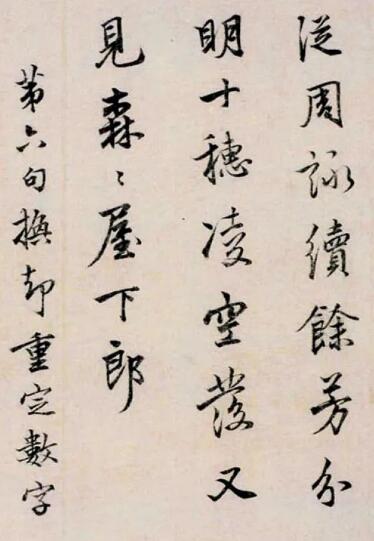 從周詠續餘芳分
明十穗凌空發又
見森〻屋下郎
第六句撫却重定數字